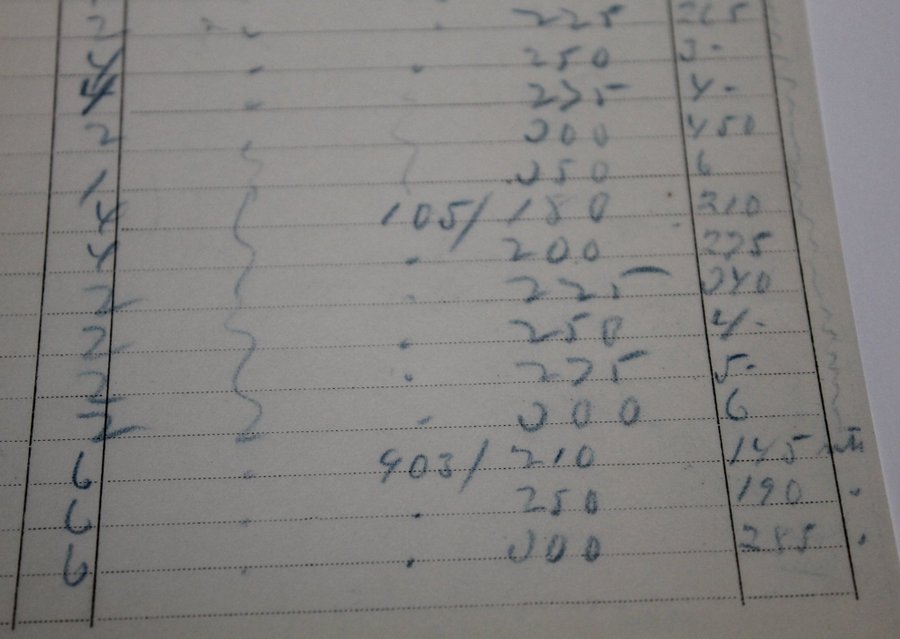 2 " " 225 265
4 " " 250 3-
4 " 275 4-
2 300 450
1 350 6
4 105/180 210
4 " 200 275
2 " 225 340
2 " 250 4-
2 " 275 5-
1 " 300 6
6 " 903/210 145
6 " " 250 190 "
6 " " 300 285 "